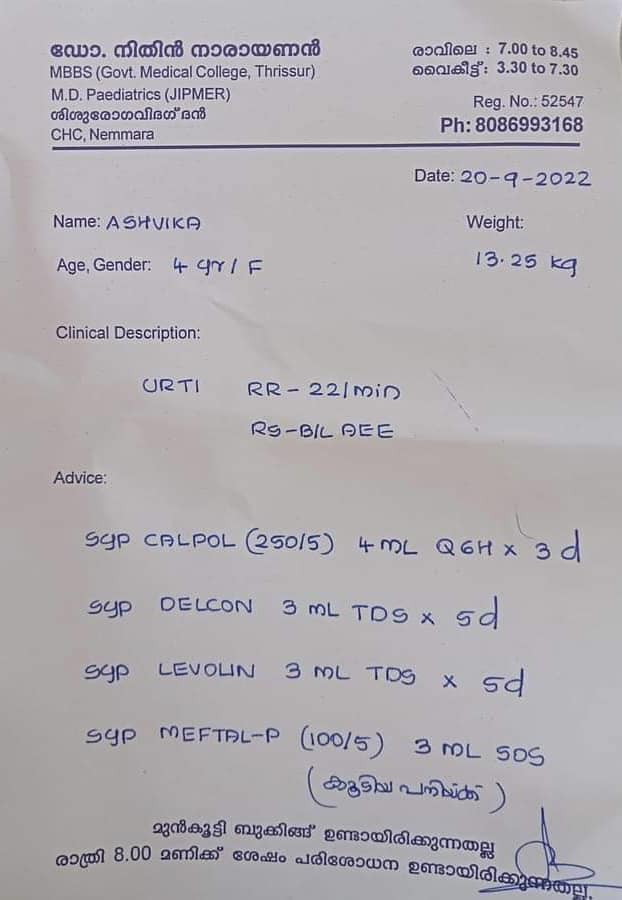 ഡോ. നിതിൻ നാരായണൻ
MBBS (Govt. Medical College, Thrissur)
M.D. Paediatrics (JIPMER)
ശിശുരോഗവിദഗ്ദൻ
CHC, Nemmara
രാവിലെ : 7.00 to 8.45
വൈകീട്ട് : 3.30 to 7.30
Reg. No.: 52547
Ph: 8086993168
Date: 20-9-2022
Name: ASHVIKA
Weight:
13.25 kg
Age, Gender: 4 yr / F
Clinical Description:
URTI RR - 22/min
RS - B/L AEE
Advice:
Syp CALPOL (250/5) 4 mL Q6H x 3d
Syp DELCON 3 mL TDS x 5d
Syp LEVOLIN 3 mL TDS x 5d
Syp MEFTAL-P (100/5) 3 mL SOS
(കൂടിയ പനിയ്ക്ക്)
മുൻകൂട്ടി ബുക്കിങ്ങ് ഉണ്ടായിരിക്കുന്നതല്ല
രാത്രി 8.00 മണിക്ക് ശേഷം പരിശോധന ഉണ്ടായിരിക്കുന്നതല്ല.